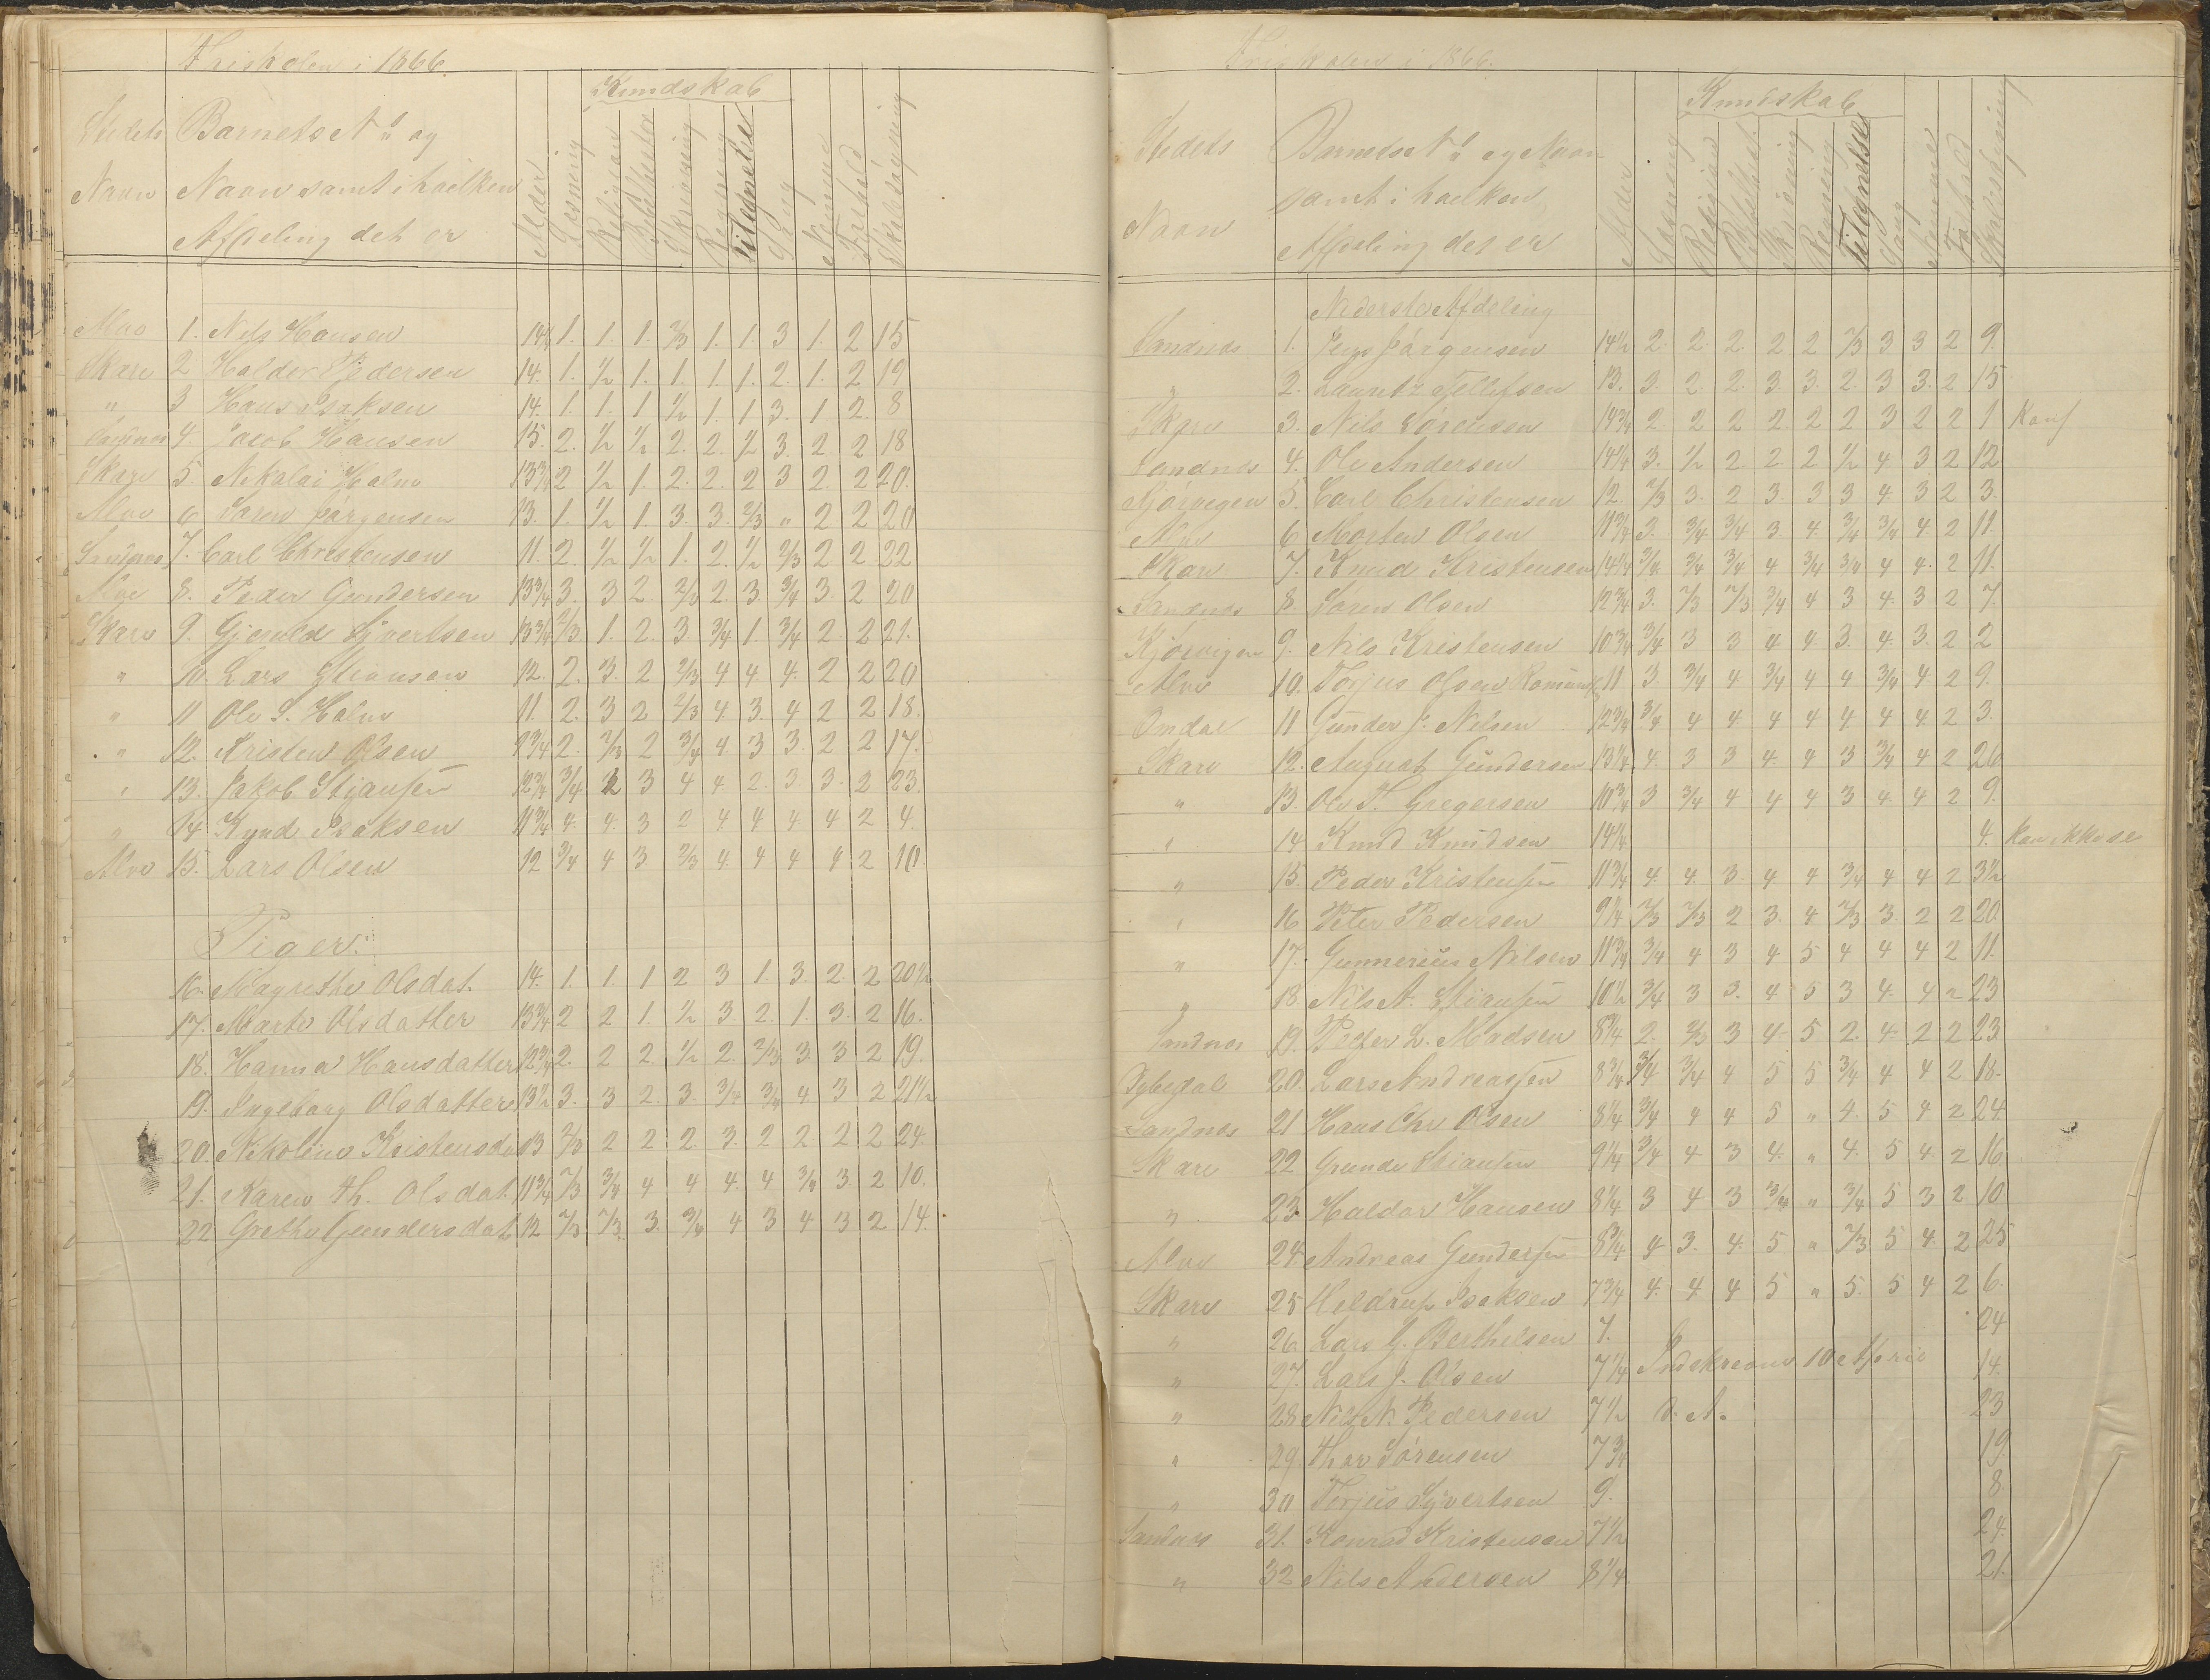 Friskolen i 1866.
Kundskab
Stedets Barnets No og
Navn Navn samt i hvilken
Afdeling det er
Alder Læsning Religion Bibelhistor Skrivning Regning Tilegnelse Sang Nemme Forhold Skolesøgning
Alve 1. Nils Hansen 14 1. 1. 1. 2/3 1. 1. 3 1. 2 15
Skare 2 Haldor Pedersen 14. 1. 1/2 1. 1. 1. 1. 2. 1. 2 19
" 3 Hans Isaksen 14. 1. 1. 1 1/2 1. 1 3. 1. 2. 8
Sandnes 4. Jacob Hansen 15. 2. 1/2 1/2 2. 2. 1/2 3. 2 2 18
Skare 5. Nikolai Halvo 13 3/4 2 1/2 1. 2. 2. 2 3 2. 2 20.
Alve 6 Søren Jørgensen 13. 1. 1/2 1. 3. 3. 2/3 " 2 2 20
Sandnes 7. Carl Christensen 11. 2. 1/2 1/2 1. 2. 1/2 2/3 2 2 22
Alve 8. Peder Gundersen 13 3/4 3. 3 2. 2/3 2. 3. 3/4 3. 2 20
Skare 9. Gjeruld Syvertsen 13 3/4 2/3 1. 2. 3. 3/4 1. 3/4 2. 2 21.
" 10. Lars Stiansen 12. 2. 3. 2 2/3 4 4. 4. 2 2 20
" 11 Ole S. Halvo 11. 2. 3 2 2/3 4. 3. 4 2 2 18.
" 12. Kristen Olsen 9 3/4 2. 2/3 2 3/4 4. 3 3. 2 2 17.
" 13. Jakob Stiansen 12 3/4 3/4 2 3 4 4. 2. 3. 3. 2 23.
" 14. Knud Isaksen 11 3/4 4. 4. 3 2 4 4 4. 4 2 4.
Alve 15. Lars Olsen 12 3/4 4 3 2/3 4. 4 4 4 2 10.
Piger:
16. Magrethe Olsdat. 14. 1. 1 1 2 3 1. 3. 2. 2 20 1/2
17. Marte Olsdatter 13 3/4 2 2 1. 1/2 3. 2. 1. 3. 2 16.
18. Hanna Hansdatter 12 3/4 2. 2 2. 1/2 2. 2/3 3 3 2 19.
19. Ingeborg Olsdatter 13 1/2 3. 3 2. 3. 3/4 3/4 4 3 2 21 1/2
20. Nikoline Kristensdat 13 2/3 2 2 2 3. 2 2. 2 2 24.
21. Karen Th. Olsdat. 11 3/4 2/3 3/4 4 4 4. 4 3/4 3. 2 10.
22 Grethe Gundersdat 12 2/3 2/3 3. 3/4 4 3 4 3 2 14.
Friskolen i 1866.
Kundskab
Stedets Barnets No og Navn
samt i hvilken
Navn Afdeling det er
Alder Læsning Religion Bibelhist. Skrivning Regning Tilegnelse Sang Nemme Forhold Skolesøgning
Nederste Afdeling
Sandnes 1. Jens Jørgensen 14 1/2 2. 2. 2. 2 2 2/3 3 3 2 9.
" 2. Lauritz Tellefsen 13. 3. 2. 2. 3. 3. 2. 3 3. 2 15
Skare 3. Nils Sørensen 14 3/4 2 2 2 2. 2 2 3 2 2 1 Konf
Sandnes 4. Ole Andersen 14 1/4 3. 1/2 2. 2. 2 1/2 4 3 2 12.
Kjørvigen 5. Carl Christensen 12. 2/3 3. 2 3. 3 3 4. 3 2 3.
Alve 6 Morten Olsen 11 3/4 3. 3/4 3/4 3. 4 3/4 3/4 4. 2 11.
Skare 7. Knud Kristensen 14 1/4 3/4 3/4 3/4 4 3/4 3/4 4 4. 2 11.
Sandnes 8. Søren Olsen 12 3/4 3. 2/3 2/3 3/4 4 3 4. 3 2 7.
Kjørvigen 9. Nils Kristensen 10 3/4 3/4 3 3 4 4 3. 4. 3. 2 2
Alve 10. Torjus Olsen 11 3. 3/4 4. 3/4 4 4 3/4 4 2 9.
Omdal 11 Gunder J. Nilsen 12 3/4 3/4 4 4. 4 4 4 4 4 2 3.
Skare 12. August Gundersen 13 1/4 4. 3 3 4. 4 3 3/4 4 2 26
" 13. Ole T. Gregersen 10 3/4 3 3/4 4 4 4 3 4. 4 2 9.
" 14 Knud Knudsen 14 1/4 4. kan ikke se
" 15. Peder Kristensen 11 3/4 4. 4. 3. 4 4 3/4 4 4 2 3 1/2
" 16 Peter Pedersen 9 1/4 2/3 2/3 2 3. 4 2/3 3. 2 2 20.
" 17. Gunnerius Nilsen 11 3/4 3/4 4 3 4 5 4 4 4 2 11.
" 18 Nils A. Stiansen 10 1/2 3/4 3 3. 4 5 3 4. 4 2 23
Sandnes 19. Peder L. Madsen 8 3/4 2. 2/3 3 4. 5 2. 4. 2 2 23
Dybedal 20. Lars Andreassen 8 3/4 3/4 3/4 4 5 5 3/4 4 4 2. 18.
Sandnes 21 Hans Chr Olsen 8 1/4 3/4 4 4 5 " 4. 5 4 2 24
Skare 22 Gunde Stiansen 9 1/4 3/4 4 3 4. " 4. 5 4. 2 16
" 23. Haldor Hansen 8 1/4 3 4 3 3/4 " 3/4 5 3 2 10.
Alve 24. Andreas Gundersen 8 3/4 4 3. 4. 5 " 2/3 5 4. 2 25
Skare 25 Heldrup Isaksen 7 3/4 4. 4. 4 5 " 5. 5 4 2 6.
" 26. Lars G. Berthelsen 7. 24
" 27. Lars J. Olsen 7 1/4 Indskrevne 10 April 14.
" 28 Nils N. Pedersen 7 1/2 d. A. 23
" 29. Thor Sørensen 7 3/4 19.
" 30 Torjus Syvertsen 9. 8.
Sandnes 31. Konrad Kristensen 7 1/2 24.
" 32 Nils Andersen 8 1/4 21.